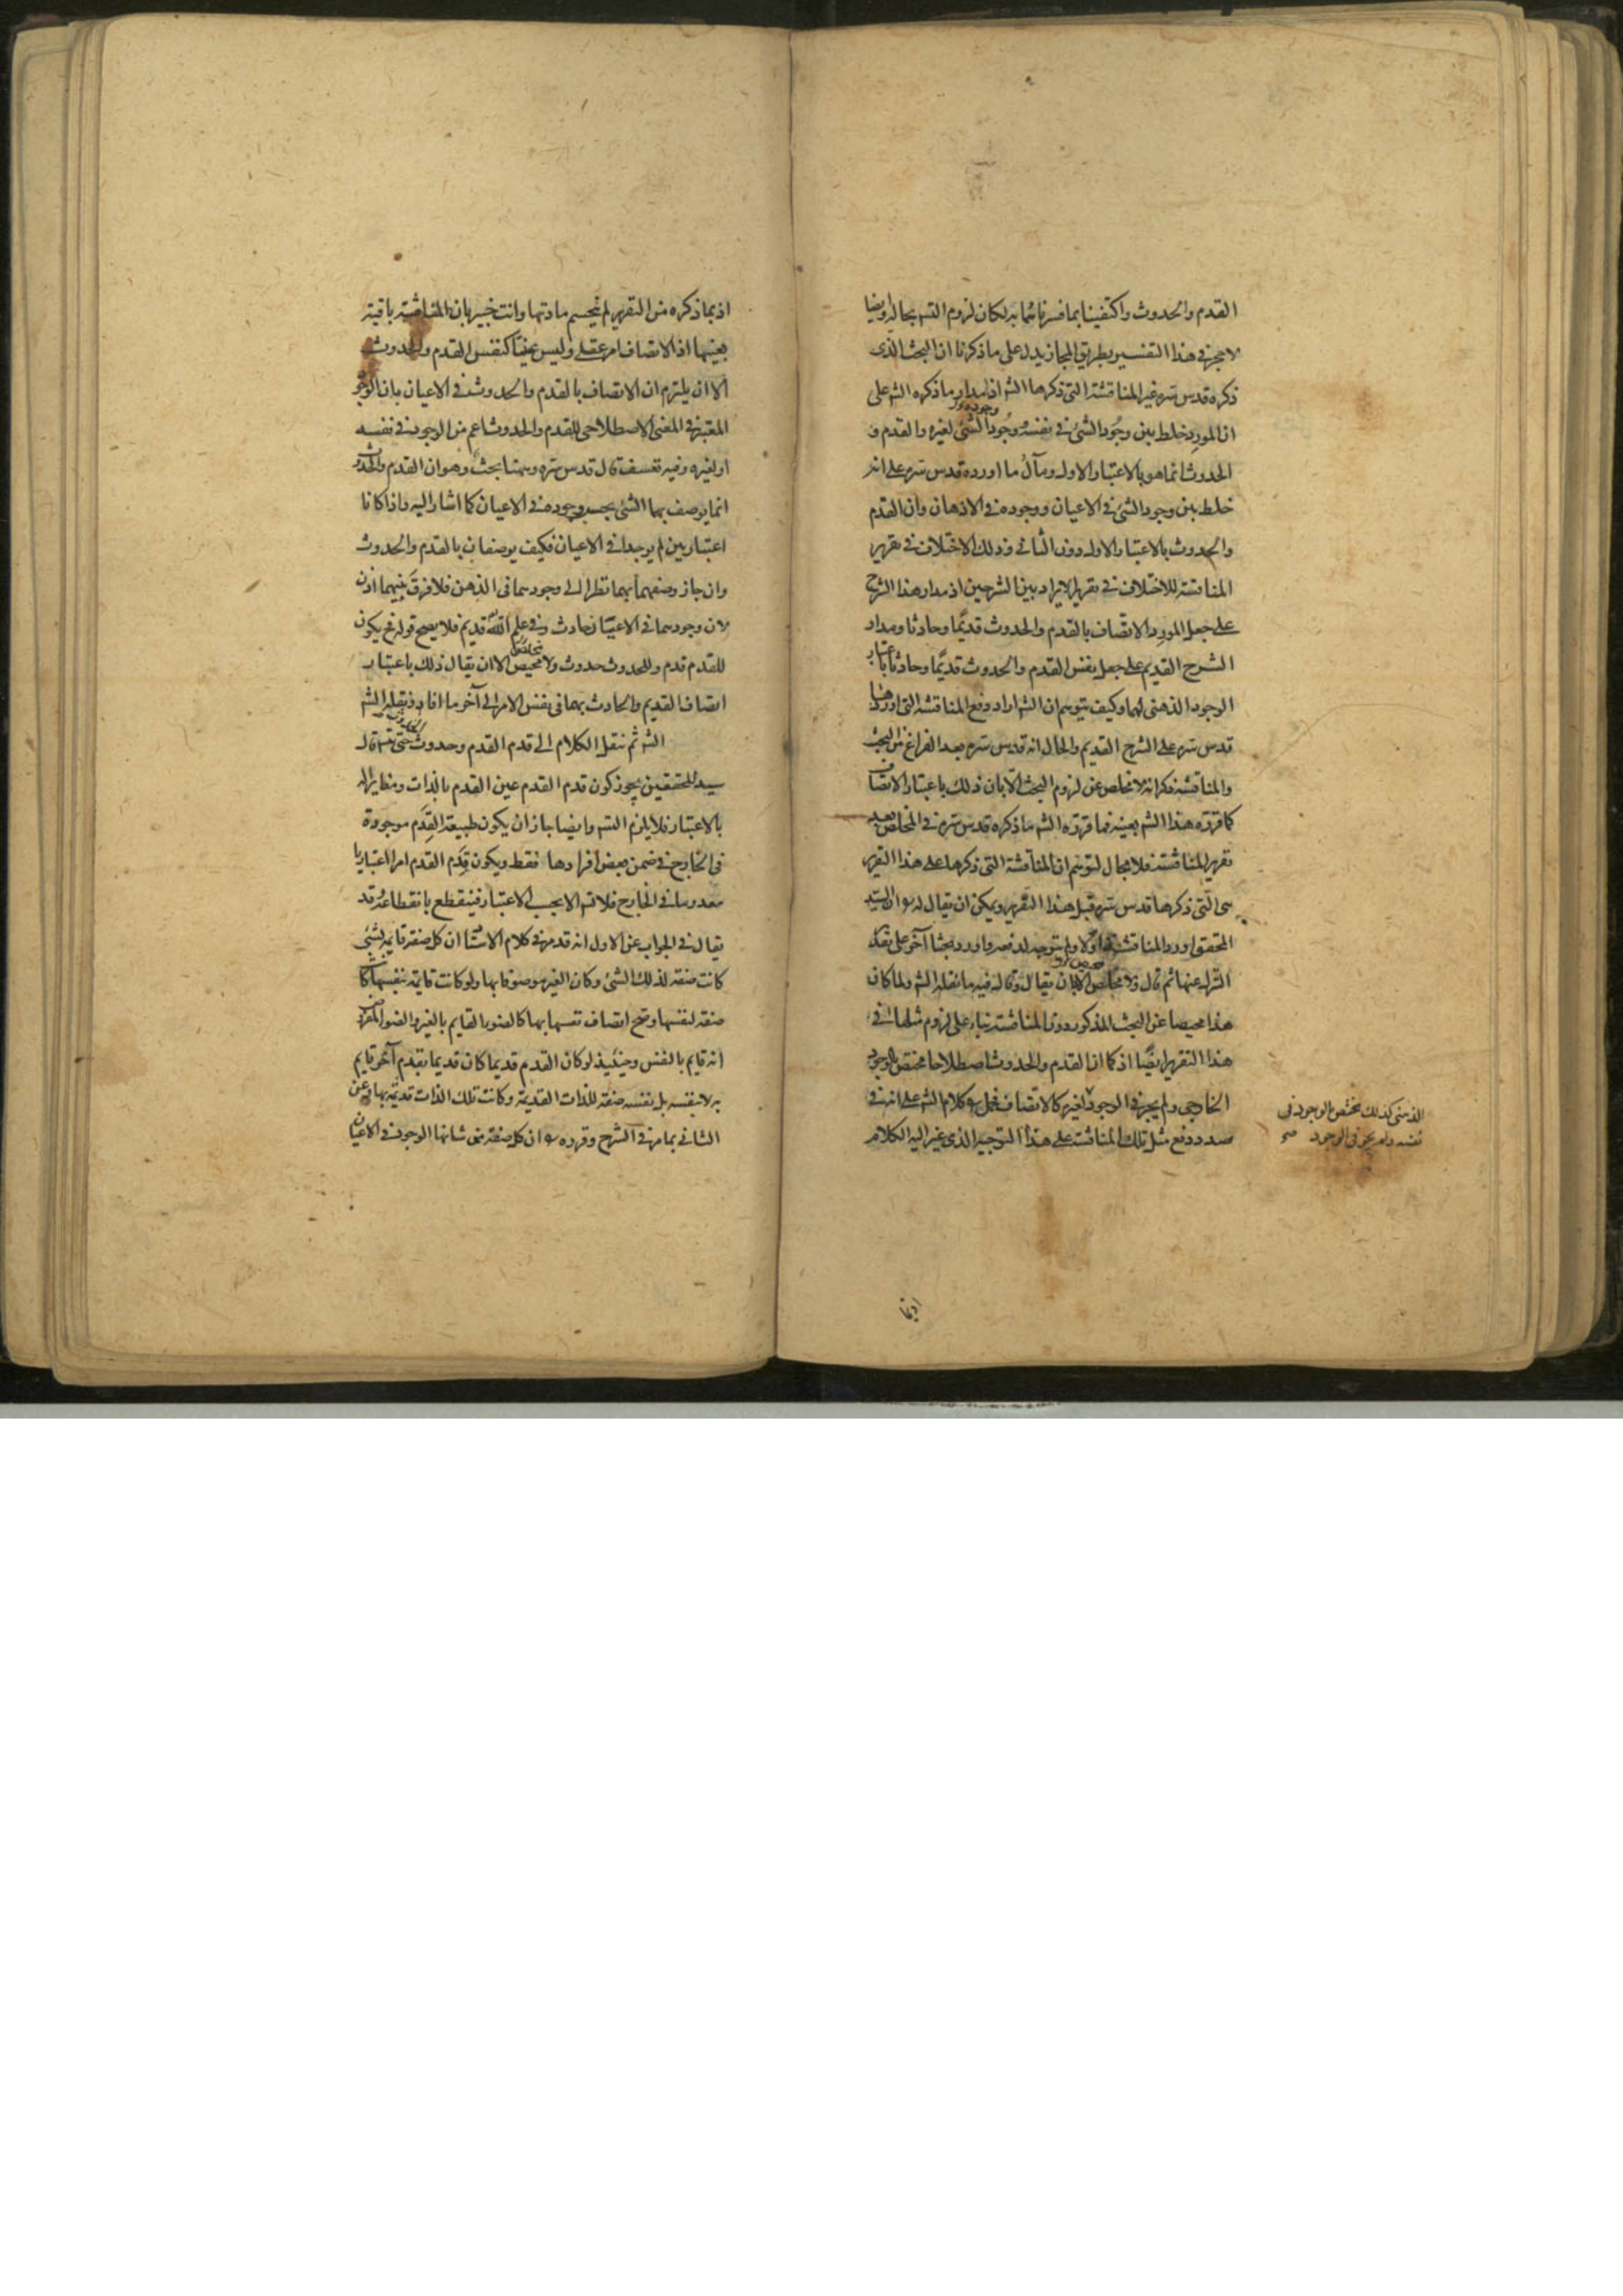 القدم والحدوث واكتفينا بما فسرناهما به لكان لزوم التسه بحاله وايضا
لا يجرى هذا التفسير بطريق المجاز يدل على ما ذكرنا ان البحث الذى
ذكره قدس سره غير المناقشة التى ذكرها الشه اذ مدار ما ذكره الشه على
ان المورد خلط بين وجود الشئ فى نفسه ووجود الشئ لغيره والقدم و
الحدوث انما هو بالاعتبار الاول ومآل ما اورده قدس سره على انه
خلط بين وجود الشئ فى الاعيان ووجوده فى الاذهان وان القدم
والحدوث بالاعتبار الاول دون الثانى وذلك الاختلاف فى تقرير
المناقشة للاختلاف فى تقرير الايراد بين الشرحين اذ مدار هذا الشرح
على جعل المورد الاتصاف بالقدم والحدوث قديمًا وحادثا ومدار
الشرح القديم على جعل نفس القدم والحدوث قديمًا وحادثا باعتبار
الوجود الذهنى لهما وكيف يتوهم ان الشه اراد دفع المناقشة التى اوردها
قدس سره على الشرح القديم والحال انه قدس سره بعد الفراغ من البحث
والمناقشة ذكر انه لا مخلص عن لزوم البحث الا بان ذلك باعتبار الاتصاف
كما قرره هذا الشه بعينه فما قرره الشه ما ذكره قدس سره فى المخلص بعد
تقرير المناقشة فلا مجال لتوهم ان المناقشة التى ذكرها على هذا التقرير
هى التى ذكرها قدس سره قبل هذا التقرير ويمكن ان يقال لما ان السيد
المحقق اورد المناقشة اولا ولم يتوجه لدفعه واورد بحثا آخر على تقدير
التنزل عنها ثم قال ولا مخلص الا بان يقال وقال فيه ما نقله الشه ولما كان
هذا محيصا عن البحث المذكور دون المناقشة بناء على لزوم مثلها فى
هذا التقرير ايضًا اذ كما ان القدم والحدوث اصطلاحا مختص بالوجود
الخارجى ولم يجز فى الوجود لغيره كالاتصاف فحمل كلام الشه على انه فى
صدد دفع مثل تلك المناقشة على هذا التوجيه الذى غير اليه الكلام
الذهنى كذلك مختص الوجود فى
نفسه ولم يجز فى الوجود صح
اذ بما
اذ بما ذكره من التقرير لم ينحسم مادتها وانت خبير بان المناقشة باقية
بعينها اذ الاتصاف امر عقلى وليس عينيًا كنفس القدم والحدوث
الا ان يلتزم ان الاتصاف بالقدم والحدوث فى الاعيان بان الوجود
المعتبر فى المعنى الاصطلاحى للقدم والحدوث اعم من الوجود فى نفسه
او لغيره وفيه تعسف قال قدس سره وههنا بحث وهو ان القدم والحدوث
انما يوصف بهما الشئ بحسب وجوده فى الاعيان كما اشار اليه واذا كانا
اعتباريين لم يوجدا فى الاعيان فكيف يوصفان بالقدم والحدوث
وان جاز وصفهما بهما نظرا الى وجودهما فى الذهن فلا فرق بينهما اذن
لان وجودهما فى الاعيان حادث وفى علم الله قديم فلا يصح قوله فح يكون
للقدم قدم وللحدوث حدوث ولا محيص الا ان يقال ذلك باعتبار
اتصاف القديم والحادث بهما فى نفس الامر الى آخر ما افاد ونقله الشه
الشه ثم ننقل الكلام الى قدم القدم وحدوث الحدوث حتى تسه قال
سيد المحققين يجوز كون قدم القدم عين القدم بالذات ومغايرا له
بالاعتبار فلا يلزم التسه وايضا جاز ان يكون طبيعة القِدَم موجودة
فى الخارج فى ضمن بعض افرادها فقط ويكون قِدَم القِدم امرا اعتباريا
معدوما فى الخارج فلا تسه الا بحسب الاعتبار فينقطع بانقطاعه قد
يقال فى الجواب عن الاول انه قد مر فى كلام الاستاد ان كل صفة قايمة بشئ
كانت صفة لذلك الشئ وكان الغير موصوفا بها ولو كانت قايمة بنفسها كانت
صفة لنفسها وصح اتصاف نفسها بها كالضوء القايم بالغير والضوء المفروض
انه قايم بالنفس وحينئيذ لو كان القدم قديما كان قديما بقدم آخر قايم
به لا بنفسه بل نفسه صفة للذات القديمة وكانت تلك الذات قديمة بها وعن
الثانى بما مر فى الشرح وقرره ان كل صفة من شانها الوجود فى الاعيان